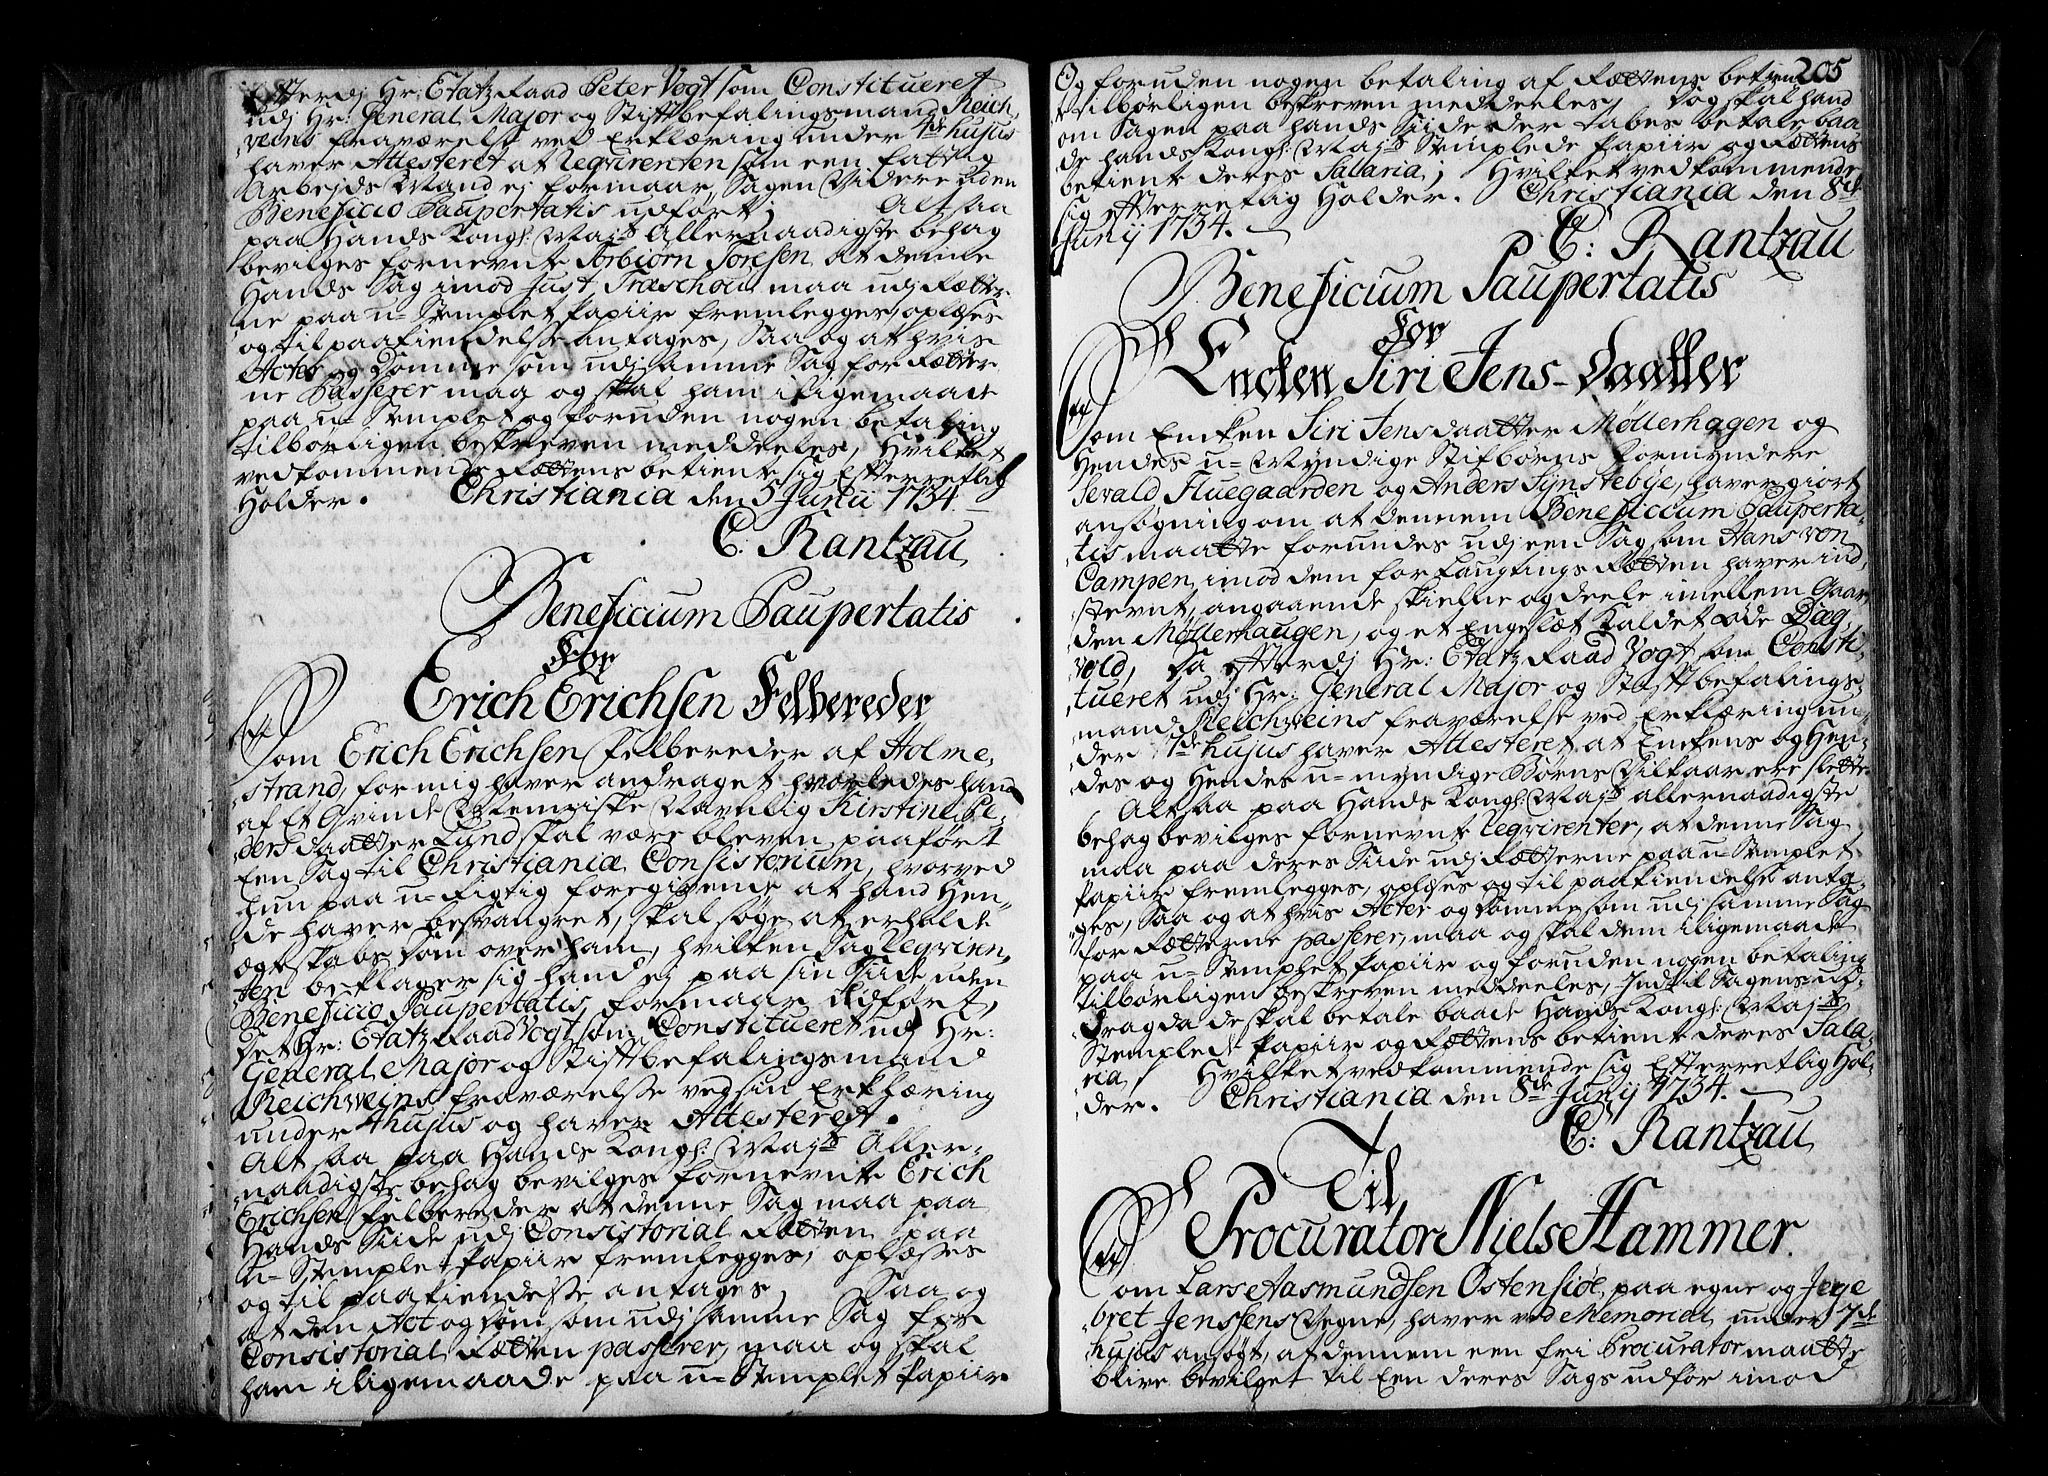 Efterdj Hr: Etatz Raad Peter Vogt som Constitueret
udj Hr: General Major og Stiftbefalingsmand Reich-
veins fraværelse ved Erklæring under 1de hujus
haver Attesteret at Reqvirenten som een fattig
Arbejds Mand ej formaar, Sagen Videre uden
Beneficio Paupertatis udført; Alt saa
paa Hands Kongl: Mayts Allernaadigste behag
bevilges fornevnte Torbiørn Toresen at denne
Hands Sag imod Just Træschou maa udj Rætter-
ne paa u-Stemplet Papiir fremlegges, oplæses
og til paakiendelse antages, Saa og at hvis
Acter og Domme som udj samme Sag for Rætter-
ne Passerer maa og skal ham iligemaade
paa u-Stemplet og foruden nogen betaling
tilbørligen beskreven meddeeles, Hvilket
vedkommende Rættens betiente sig Efterretlig
Holder. Christiania den 5 Junij 1734.
C: Rantzau
Beneficium Paupertatis
For
Erich Erichsen Felbereder
Som Erich Erichsen Felbereder af Holme-
strand, for mig haver andraget hvorledes hand
af et Qvinde Menniske Navnlig Kirstine Pe-
ders daatter Lund skal være bleven paaført
Een Sag til Christiania Consistorium, hvorved
hun paa u-rigtig foregivende at hand Hen-
de haver besvangret, skal søge at erholde
Egteskabs Dom over ham, hvilken Sag Reqviren-
ten beklager sig hand ej paa sin Siide uden
Beneficio Paupertatis formaar udført,
Det Hr: Etatz Raad Vogt som Constitueret udj Hr:
General Major og Stiftbefalingsmand
Reichweins fraværelse ved sin Erklæring
under hujus og haver Attesteret.
Alt saa paa Hands Kongl: Mayts Aller-
naadigste behag bevilges fornevnte Erich
Erichsen Felbereder at denne Sag maa paa
Hands Siide udj Consistorial Rætten paa
u-Stemplet Papiir fremlegges, oplæses
og til paakiendelse antages, Saa og
at den Act og Dom som udj samme Sag for
Consistorial Rætten passerer, maa og skal
ham iligemaade paa u-Stemplet Papiir
205
Og foruden nogen betaling af Rættens betiente
tilbørligen beskreven meddeeles, Dog skal hand
om Sagen paa hands Siide der tabes betale baa-
de hands Kongl: Mayts Stemplede Papiir og Rættens
betiente deres Salaria; Hvilket vedkommende
sig efterretlig Holder. Christiania den 8de
Junij 1734.
C: Rantzau
Beneficium Paupertatis
For
Encken Siri Jens-Daatter
Som Encken Siri Jensdaatter Møllerhagen og
Hendes u-Myndige Stifbørns Formyndere
Sevald Fluegaarden og Anders Synstebye, haver giort
ansøgning om at dennem Beneficium Pauperta-
tis maatte forundes udj een Sag som Hans von
Campen imod dem for Laugtings Rætten haver ind-
stevnt, angaaende skielne og deele imellem Gaar-
den Møllerhaugen, og et Engeslæt kaldet øde Dæg-
vold, Da efterdj Hr: Etatz Raad Vogt som Consti-
tueret udj Hr: General Major og Stiftbefalings-
mand Reichweins fraværelse ved Erklæring un-
der 1de hujus haver Attesteret at Enckens og Hen-
des og Hendes u-myndige Børns Vilkaar ere slette.
Alt saa paa Hands Kongl: Mayts allernaadigste
behag bevilges fornevnte Reqvirenter, at denne Sag
maa paa deres Siide udj Rætterne paa u-Stemplet
Papiir fremlegges, oplæses og til paakiendelse anta-
ges, Saa og at hvis Acter og Domme som udj samme Sag
for Rætterne passerer, maa og skal dem iligemaade
paa u-Stemplet Papiir og foruden nogen betaling
tilbørligen beskreven meddeeles, Indtil Sagens ud-
drag da de skal betale baade Hands Kongl: Mayts
Stemplede Papiir og Rættens betiente deres Sala-
ria, Hvilket vedkommende sig Efterretlig Hol-
der. Christiania den 8de Junij 1734.
C: Rantzau
Til
Procurator Niels Hammer.
Som Lars Aasmundsen Ostensiøe, paa egne og
bret Jenssens Vegne, haver ved Memorial under 7de
hujus ansøgt, at dennem een fri Procurator maatte
blive bevilget til Een deres Sags udfør imod